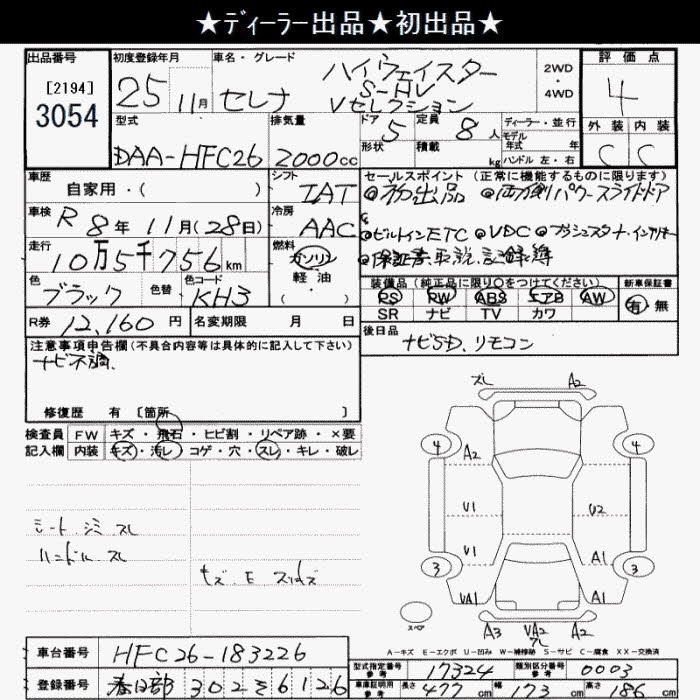 ★ディーラー出品★初出品★
出品番号 初度登録年月 車名・グレード 評価点
[2194] 3054
25 11月 セレナ ハイウェイスター S-HV Vセレクション 2WD・4WD 4
型式 排気量 ドア 定員 ディーラー・並行 外装 内装
DAA-HFC26 2000cc 5 8人 モデル年式 年 C C
形状 積載 kg ハンドル 左・右
車歴 シフト セールスポイント (正常に機能するものに限ります)
自家用・( ) IAT ◎初出品 ◎両側パワースライドドア
車検 R8年11月(28日) 冷房 AAC ◎ビルトインETC ◎VDC ◎プッシュスタート、インテリキー
走行 10万5千756km 燃料 ガソリン・軽油・( ) ◎保証書、取説、記録簿
色 ブラック 色替 色コード KH3
装備品 (純正品に限り○をつけてください) 新車保証書
PS PW ABS エアB AW 有・無
SR ナビ TV カワ
R券 12,160円 名変期限 月 日
後日品 ナビSD、リモコン
注意事項申告欄(不具合内容等は具体的に記入して下さい)
ナビ不調、
修復歴 有 〔箇所 〕
検査員記入欄 FW キズ・飛石・ヒビ割・リペア跡・×要
内装 キズ・汚レ・コゲ・穴・スレ・キレ・破レ
シート シミ スレ
ハンドル スレ
ズレ A2
4 A2 4
V1 U2
V1 A1
3 3
VA1 A1
A3 VA2 スレ A2
スペア
A-キズ E-エクボ U-凹み W-補修跡 S-サビ C-腐食 XX-交換済
車台番号 HFC26-183226
型式指定番号 参考 17324 類別区分番号 参考 0003
登録番号 春日部 302そ6126
車庫証明用 参考 長さ 477cm 幅 173cm 高さ 186cm